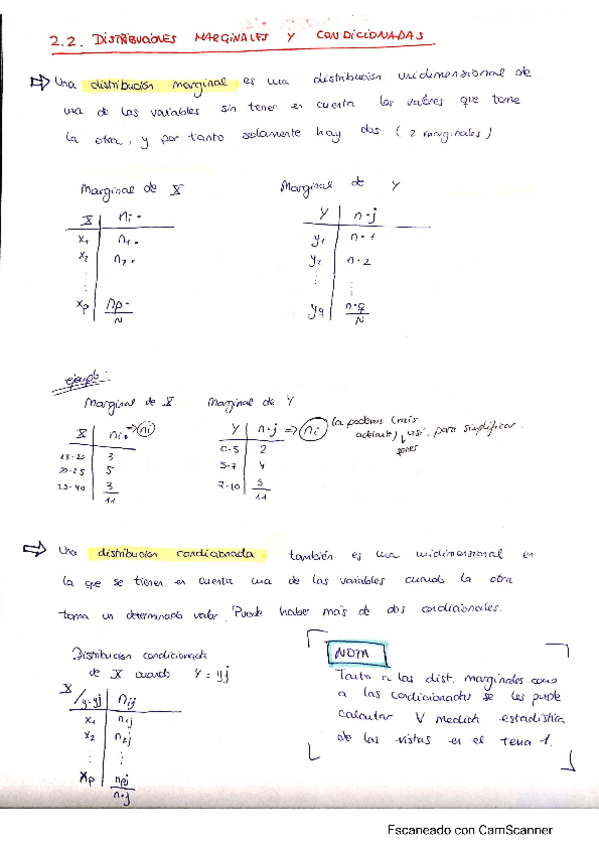 2.2. DISTRIBUCIONES MARGINALES Y CONDICIONADAS
⇒ Una distribución marginal es una distribución unidimensional de
una de las variables sin tener en cuenta los valores que tome
la otra, y por tanto solamente hay dos (2 marginales)
Marginal de X
X | ni•
x1 | n1•
x2 | n2•
⋮ | ⋮
xp | np•
N
Marginal de Y
Y | n•j
y1 | n•1
y2 | n•2
⋮ | ⋮
yq | n•q
N
ejemplo:
Marginal de X
X | ni• → ni
3
20-25 | 5
3
11
Marginal de Y
Y | n•j ⇒ ni la podemos (más
adelante) así para simplificar.
0-5 | 2
5-7 | 4
7-10 | 5
11
⇒ Una distribución condicionada también es una unidimensional en
la que se tienen en cuenta una de las variables cuando la otra
toma un determinado valor. Puede haber más de dos condicionales.
Distribución condicionada
de X cuando Y = yj
X/y=yj | nij
x1 | n1j
x2 | n2j
⋮ | ⋮
xp | npj
n•j
NOTA
Tanto a las dist. marginales como
a las condicionadas se les puede
calcular ∀ medida estadística
de las vistas en el tema 1.
Escaneado con CamScanner